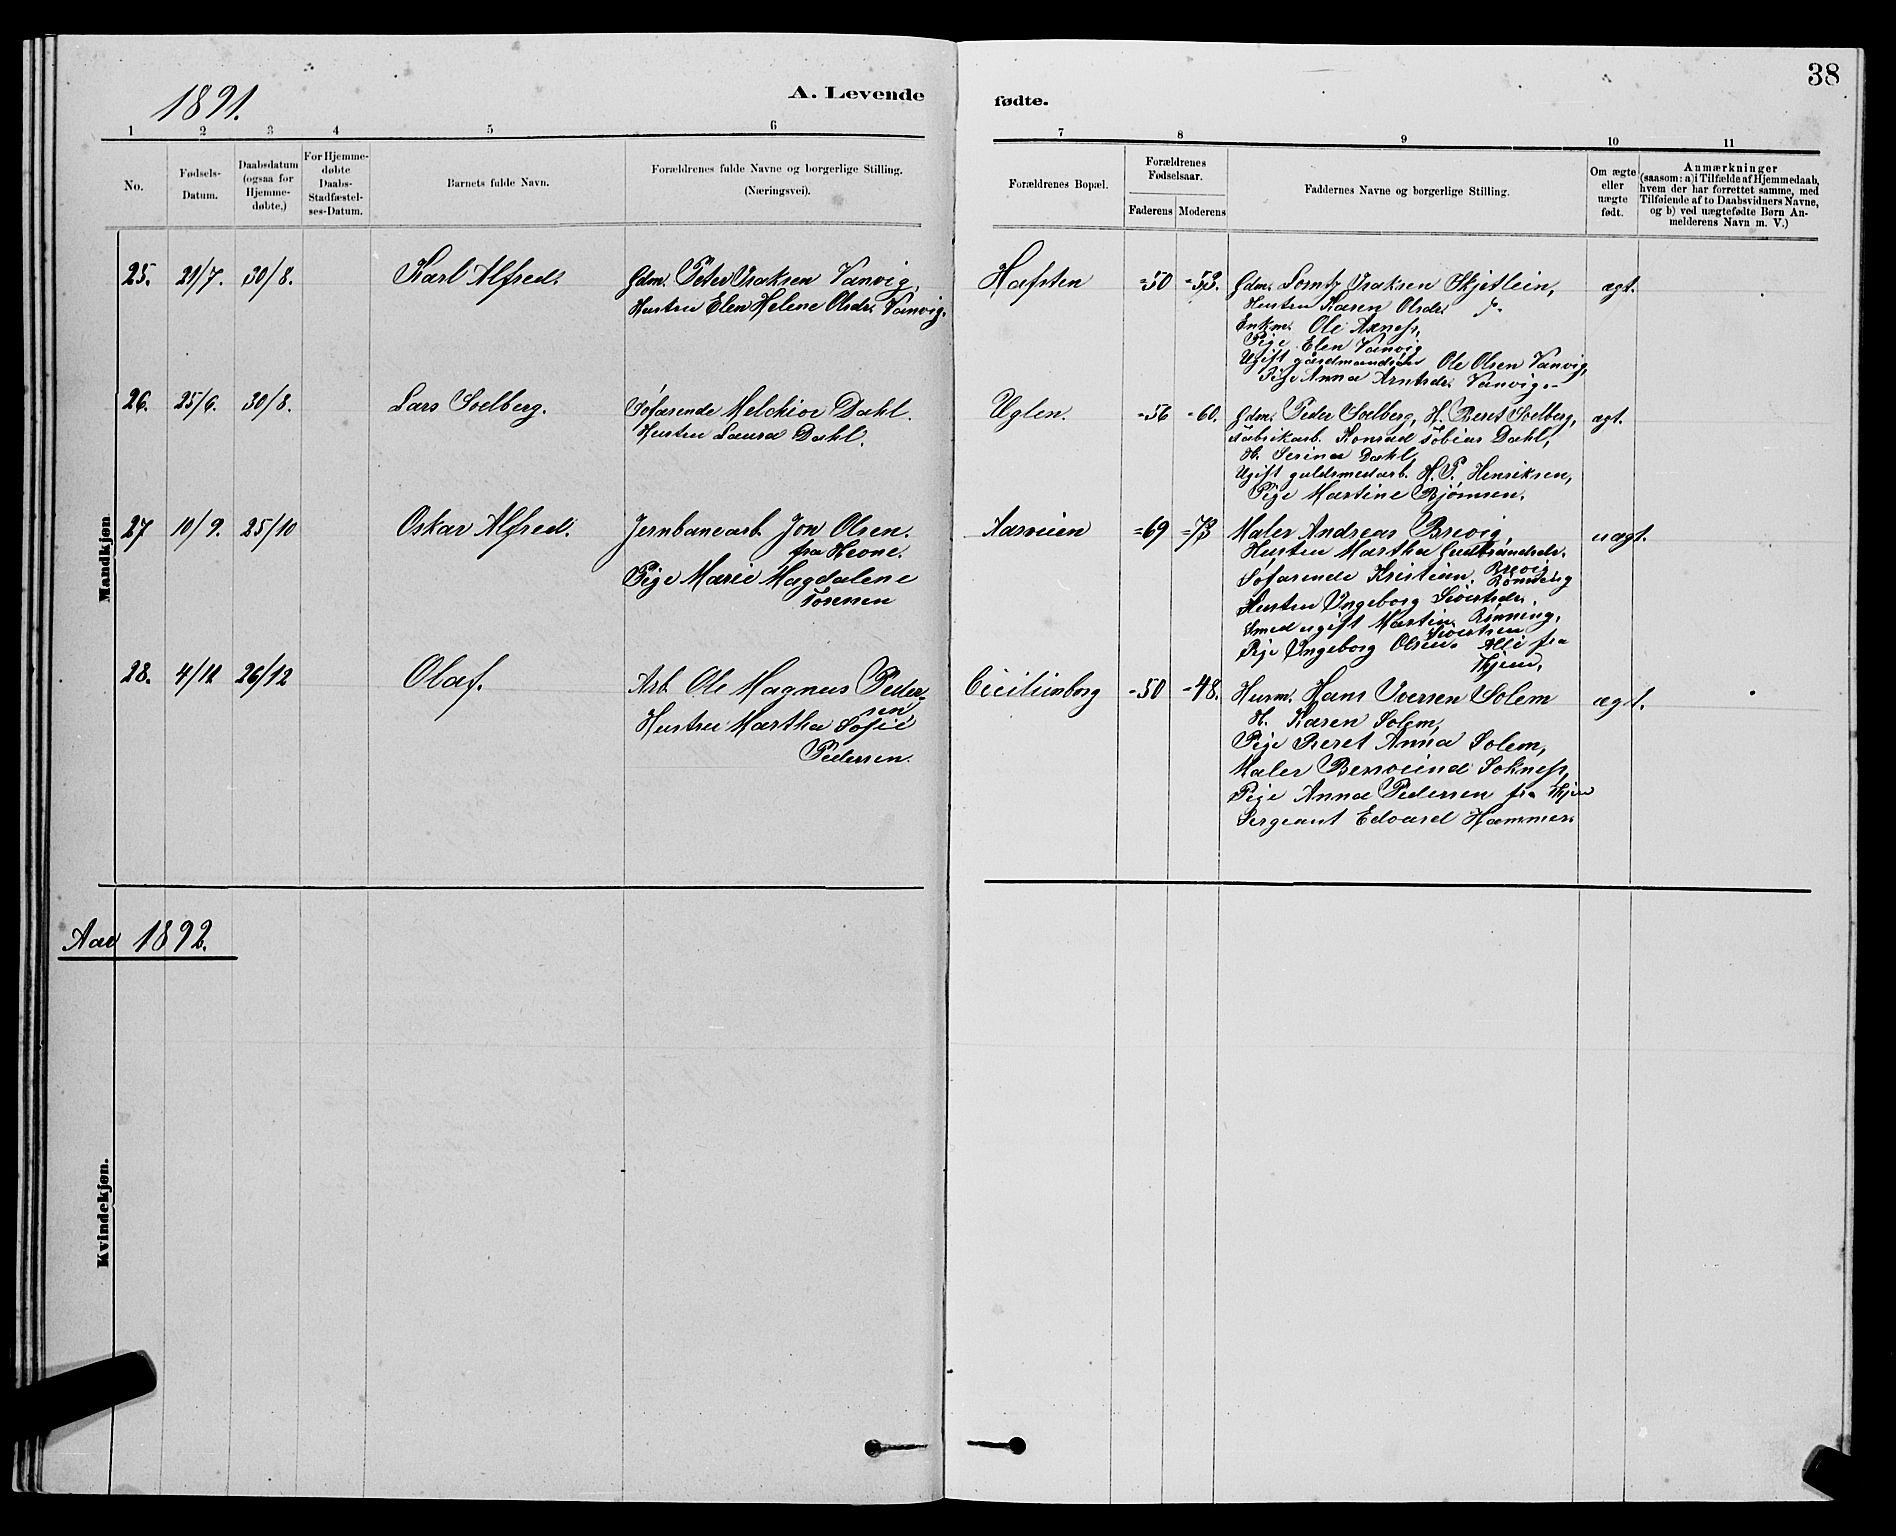 38
1891.
A. Levende
fødte.
1 2 3 4 5 6
7 8 9 10 11
No.
Fødsels-
Datum.
Daabsdatum
(ogsaa for
Hjemme-
døbte.)
For Hjemme-
døbte
Daabs-
Stadfæstel-
ses-Datum.
Barnets fulde Navn.
Forældrenes fulde Navne og borgerlige Stilling.
(Næringsvei).
Forældrenes Bopæl.
Forældrenes
Fødselsaar.
Faderens Moderens
Faddernes Navne og borgerlige Stilling.
Om ægte
eller
uægte
født.
Anmærkninger
(saasom: a) i Tilfælde af Hjemmedaab,
hvem der har forrettet samme, med
Tilføiende af to Daabsvidners Navne,
og b) ved uægtefødte Børn An-
melderens Navn m. V.)
Mandkjøn
25. 21/7. 30/8. Karl Alfred.
Gdm. Peter Isaksen Vanvig,
Hustru Elen Helene Olsdr. Vanvig.
Hafsten =50 =53.
Gdm. Lorntz Isaksen Skjetlein,
Hustru Karen Olsdr.
Enkm. Ole Axness,
Pige Elen Vanvig
Ugift gaardmandsøn Ole Olsen Vanvig,
Pige Anna Arntsdr. Vanvig.
ægt.
26. 25/6. 30/8. Lars Solberg.
Søfarende Melchior Dahl.
Hustru Laura Dahl.
Uglen. =56 =60.
Gdm. Peder Solberg, H. Beret Solberg,
Fabrikarb. Konrad Tobias Dahl,
H. Serina Dahl,
Ugift guldsmedarb. H. P. Henriksen,
Pige Martine Bjørnsen.
ægt.
27 10/9. 25/10 Oskar Alfred.
Jernbanearb. Jon Olsen.
fra Hevne.
Pige Marie Magdalene
Toresen
Aasveien =69 =73
Maler Andreas Brevig,
Hustru Martha Gudbrandsdr.
Brevig
Søfarende Kristian Rønning
Hustru Ingeborg Sivertsdr.
Rønning,
Smed ugift Martin Sivertsen
Pige Ingeborg Olsen. Alle fra
Thjem.
uægt.
28. 4/12 26/12 Olaf.
Arb. Ole Magnus Peder-
sen
Hustru Martha Sofie
Pedersen.
Cecilienborg =50 =48.
Husm. Hans Iversen Solem
H. Karen Solem,
Pige Beret Anna Solem,
Maler Bersvend Sokness,
Pige Anna Pedersen fra Thjem
Sergeant Edvard Hammer.
ægt.
Aar 1892.
Kvindekjøn.